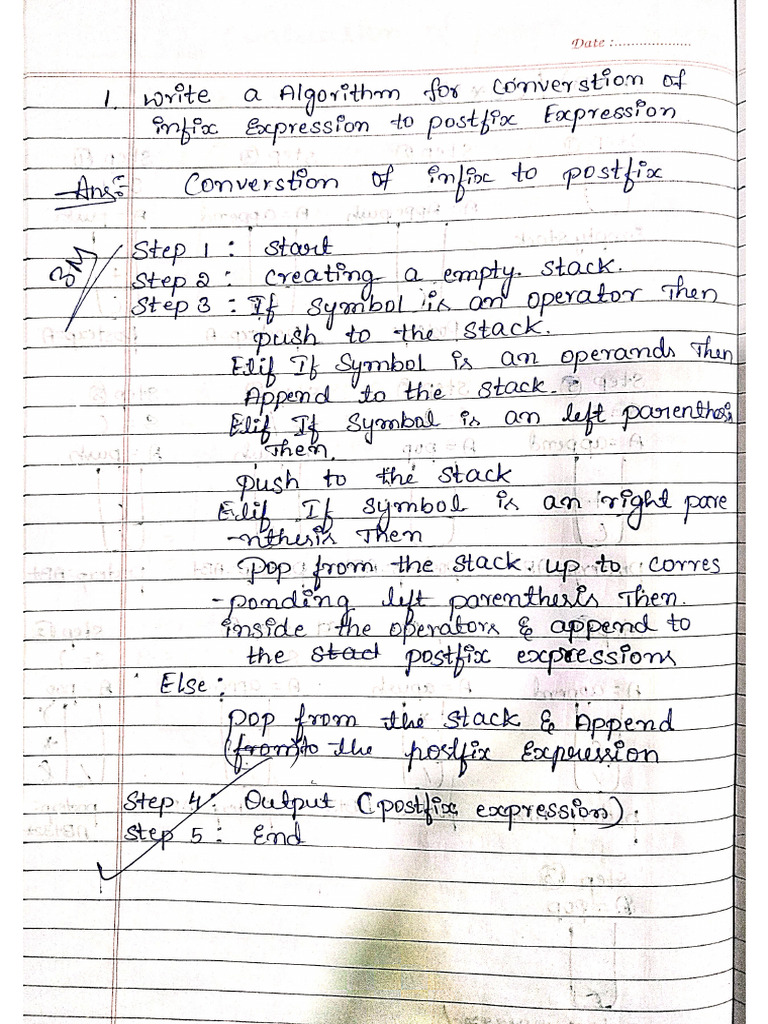 Date :...................
1. Write a Algorithm for converstion of
infix Expression to postfix Expression
Ans:- Converstion of infix to postfix
3M
Step 1 : Start
Step 2 : creating a empty stack.
Step 3 : If symbol is an operator Then
push to the stack.
Elif If symbol is an operands Then
Append to the stack.
Elif If symbol is an left parenthesis
Then.
push to the stack
Elif If symbol is an right pare
-nthesis Then
pop from the stack up to corres
-ponding left parenthesis Then.
inside the operators & append to
the stad postfix expressions
Else :
pop from the stack & Append
(from) to the postfix Expression
Step 4 : Output (postfix expression).
Step 5 : End